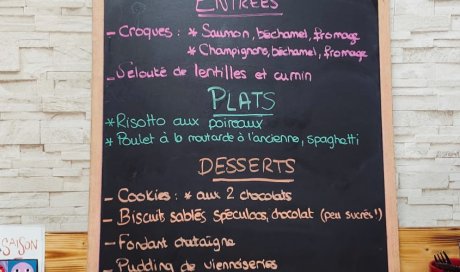 ENTRÉES
- Croques : * Saumon, béchamel, fromage
* Champignons, béchamel, fromage
- Velouté de lentilles et cumin
PLATS
* Risotto aux poireaux
* Poulet à la moutarde à l'ancienne, spaghetti
DESSERTS
- Cookies : * aux 2 chocolats
- Biscuits sablés spéculoos, chocolat (peu sucrés !)
- Fondant chataîgne
- Pudding de viennoiseries
SAISON